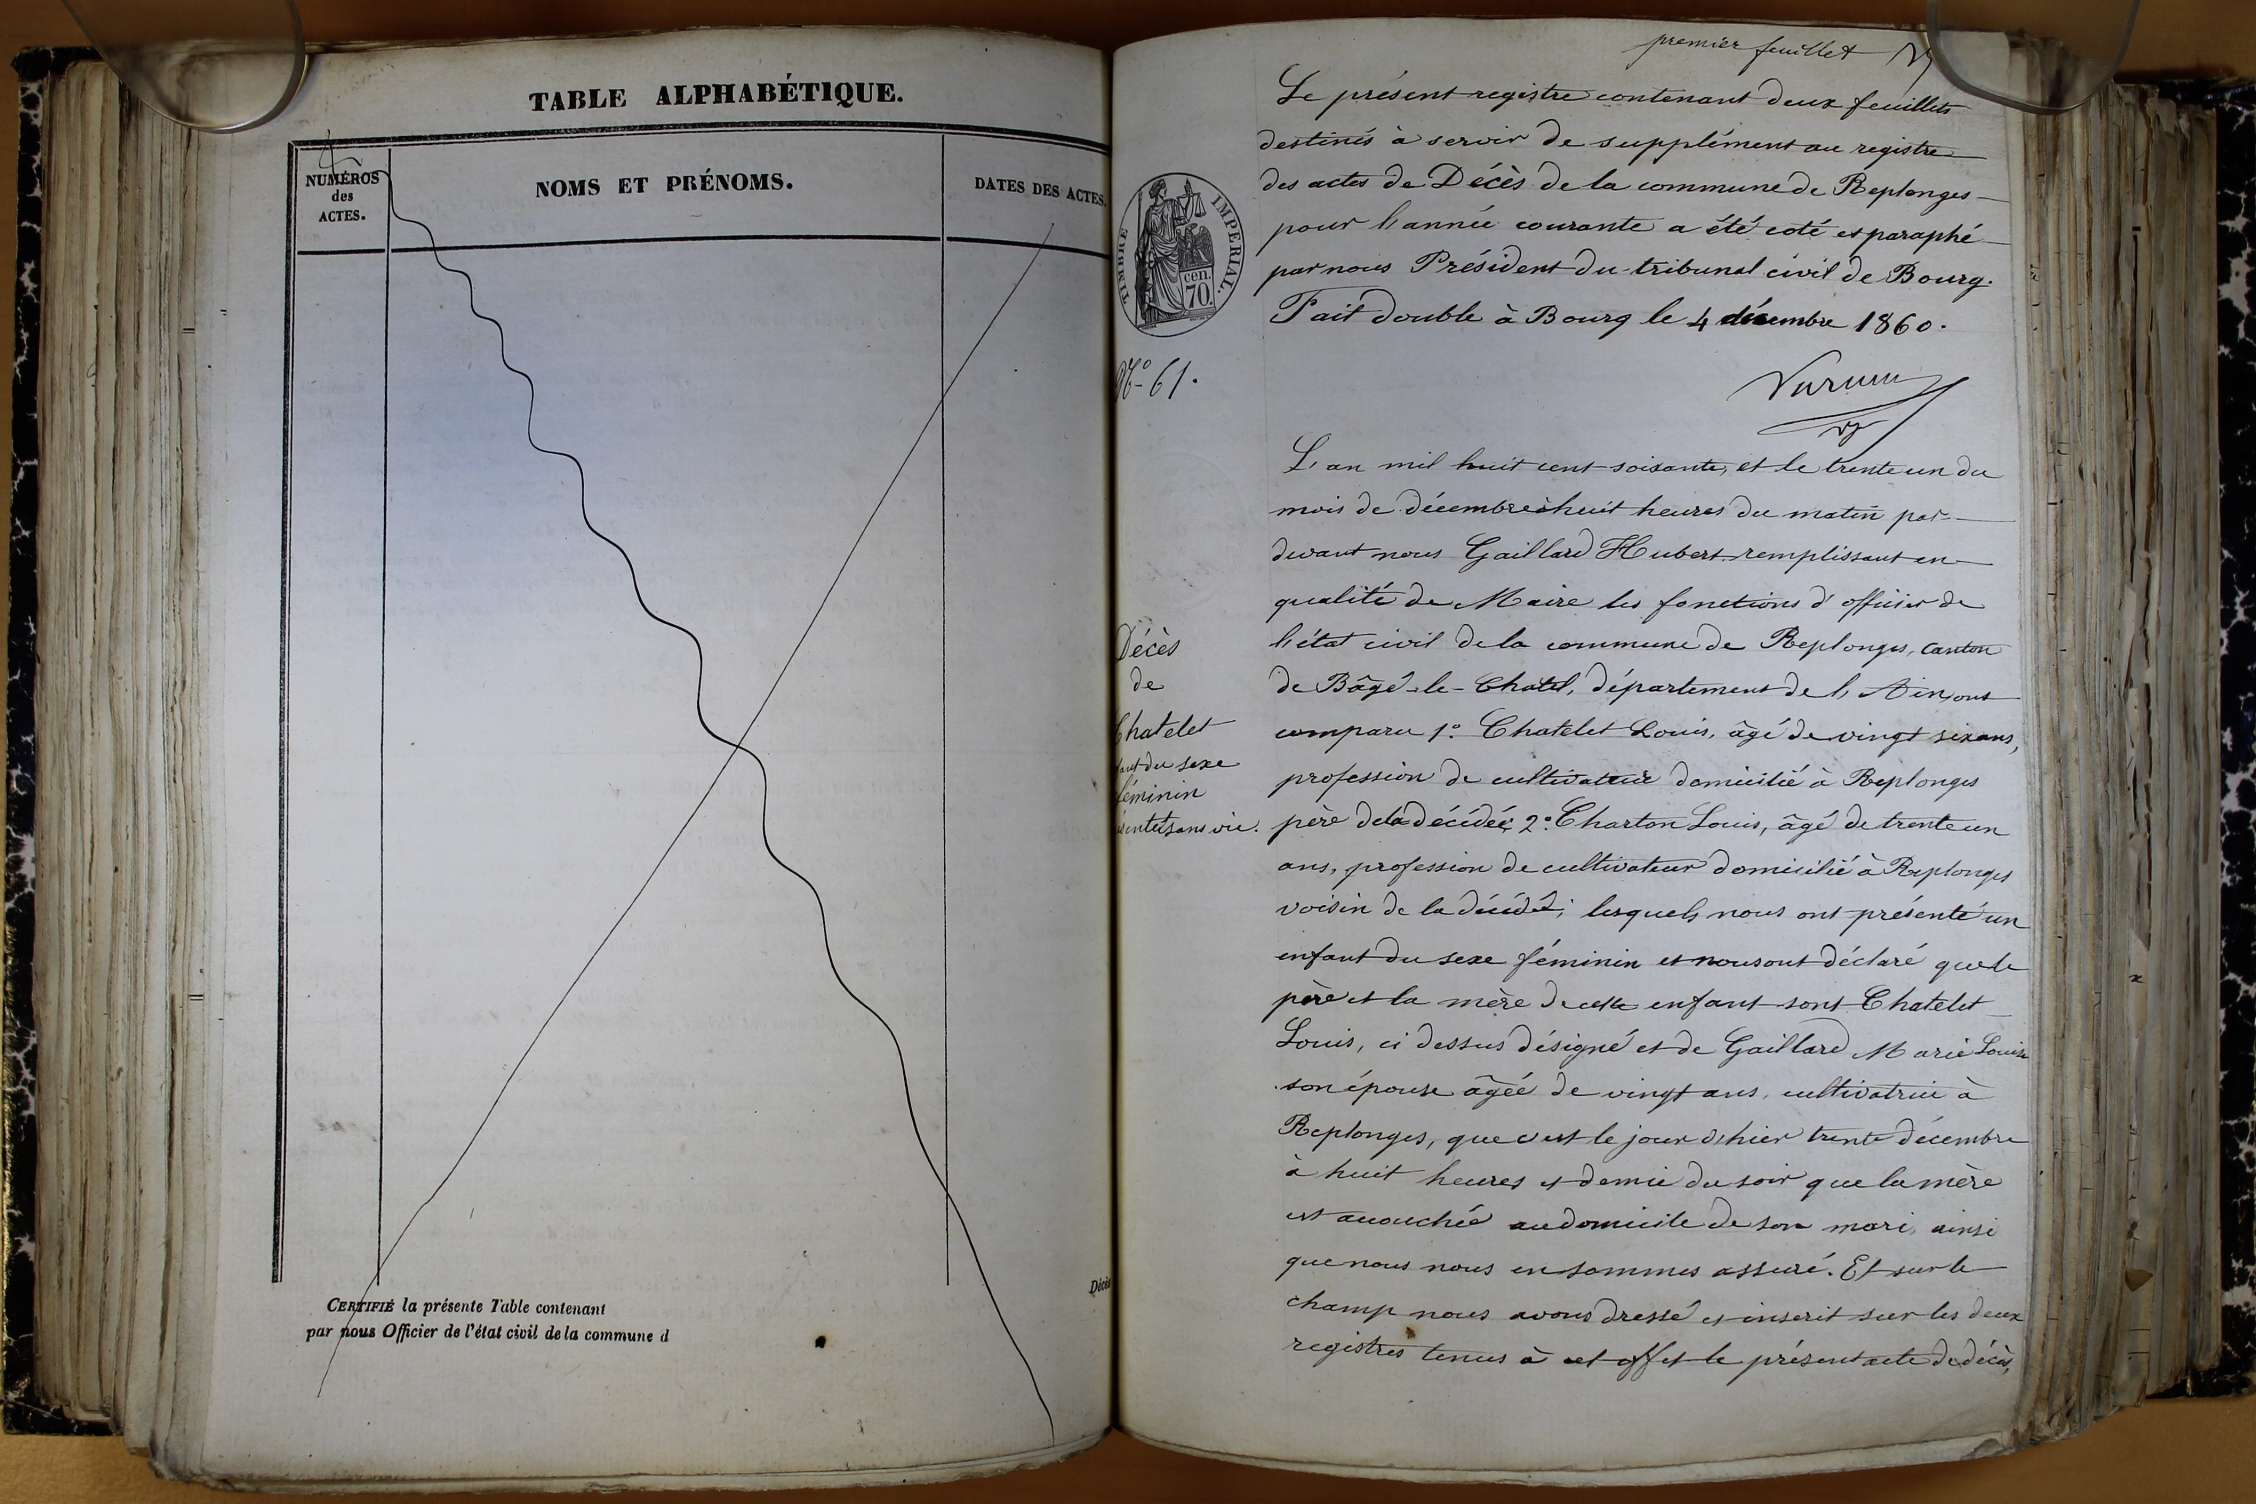 TABLE ALPHABÉTIQUE.
NUMÉROS
des
ACTES.
NOMS ET PRÉNOMS.
DATES DES ACTES.
CERTIFIÉ la présente Table contenant
par nous Officier de l'état civil de la commune d
Décès
premier feuillet
Le présent registre contenant deux feuillets
destinés à servir de supplément au registre
des actes de Décès de la commune de Replonges
pour l'année courante a été coté et paraphé
par nous Président du tribunal civil de Bourg.
Fait double à Bourg le 4 décembre 1860.
TIMBRE IMPERIAL.
70 cen.
N.o 61.
Décès
de
Chatelet
du sexe
féminin
sans vie.
L'an mil huit cent soisante, et le trente un du
mois de décembre à huit heures du matin par-
devant nous Gaillard Hubert remplissant en
qualité de Maire les fonctions d'officier de
l'état civil de la commune de Replonges, canton
de Bâgé-le-Chatel, département de l'Ain, ont
comparu 1.o Chatelet Louis, âgé de vingt six ans,
profession de cultivateur domicilié à Replonges
père de la décédée, 2.o Charton Louis, âgé de trente un
ans, profession de cultivateur domicilié à Replonges
voisin de la décédée; lesquels nous ont présenté un
enfant du sexe féminin et nous ont déclaré que le
père et la mère de cette enfant sont Chatelet
Louis, ci dessus désigné et de Gaillard Marie Louise
son épouse âgée de vingt ans, cultivatrice à
Replonges, que c'est le jour d'hier trente décembre
à huit heures et demie du soir que la mère
est accouchée au domicile de son mari, ainsi
que nous nous en sommes assuré. Et sur le
champ nous avons dressé et inscrit sur les deux
registres tenus à cet effet le présent acte de décès,